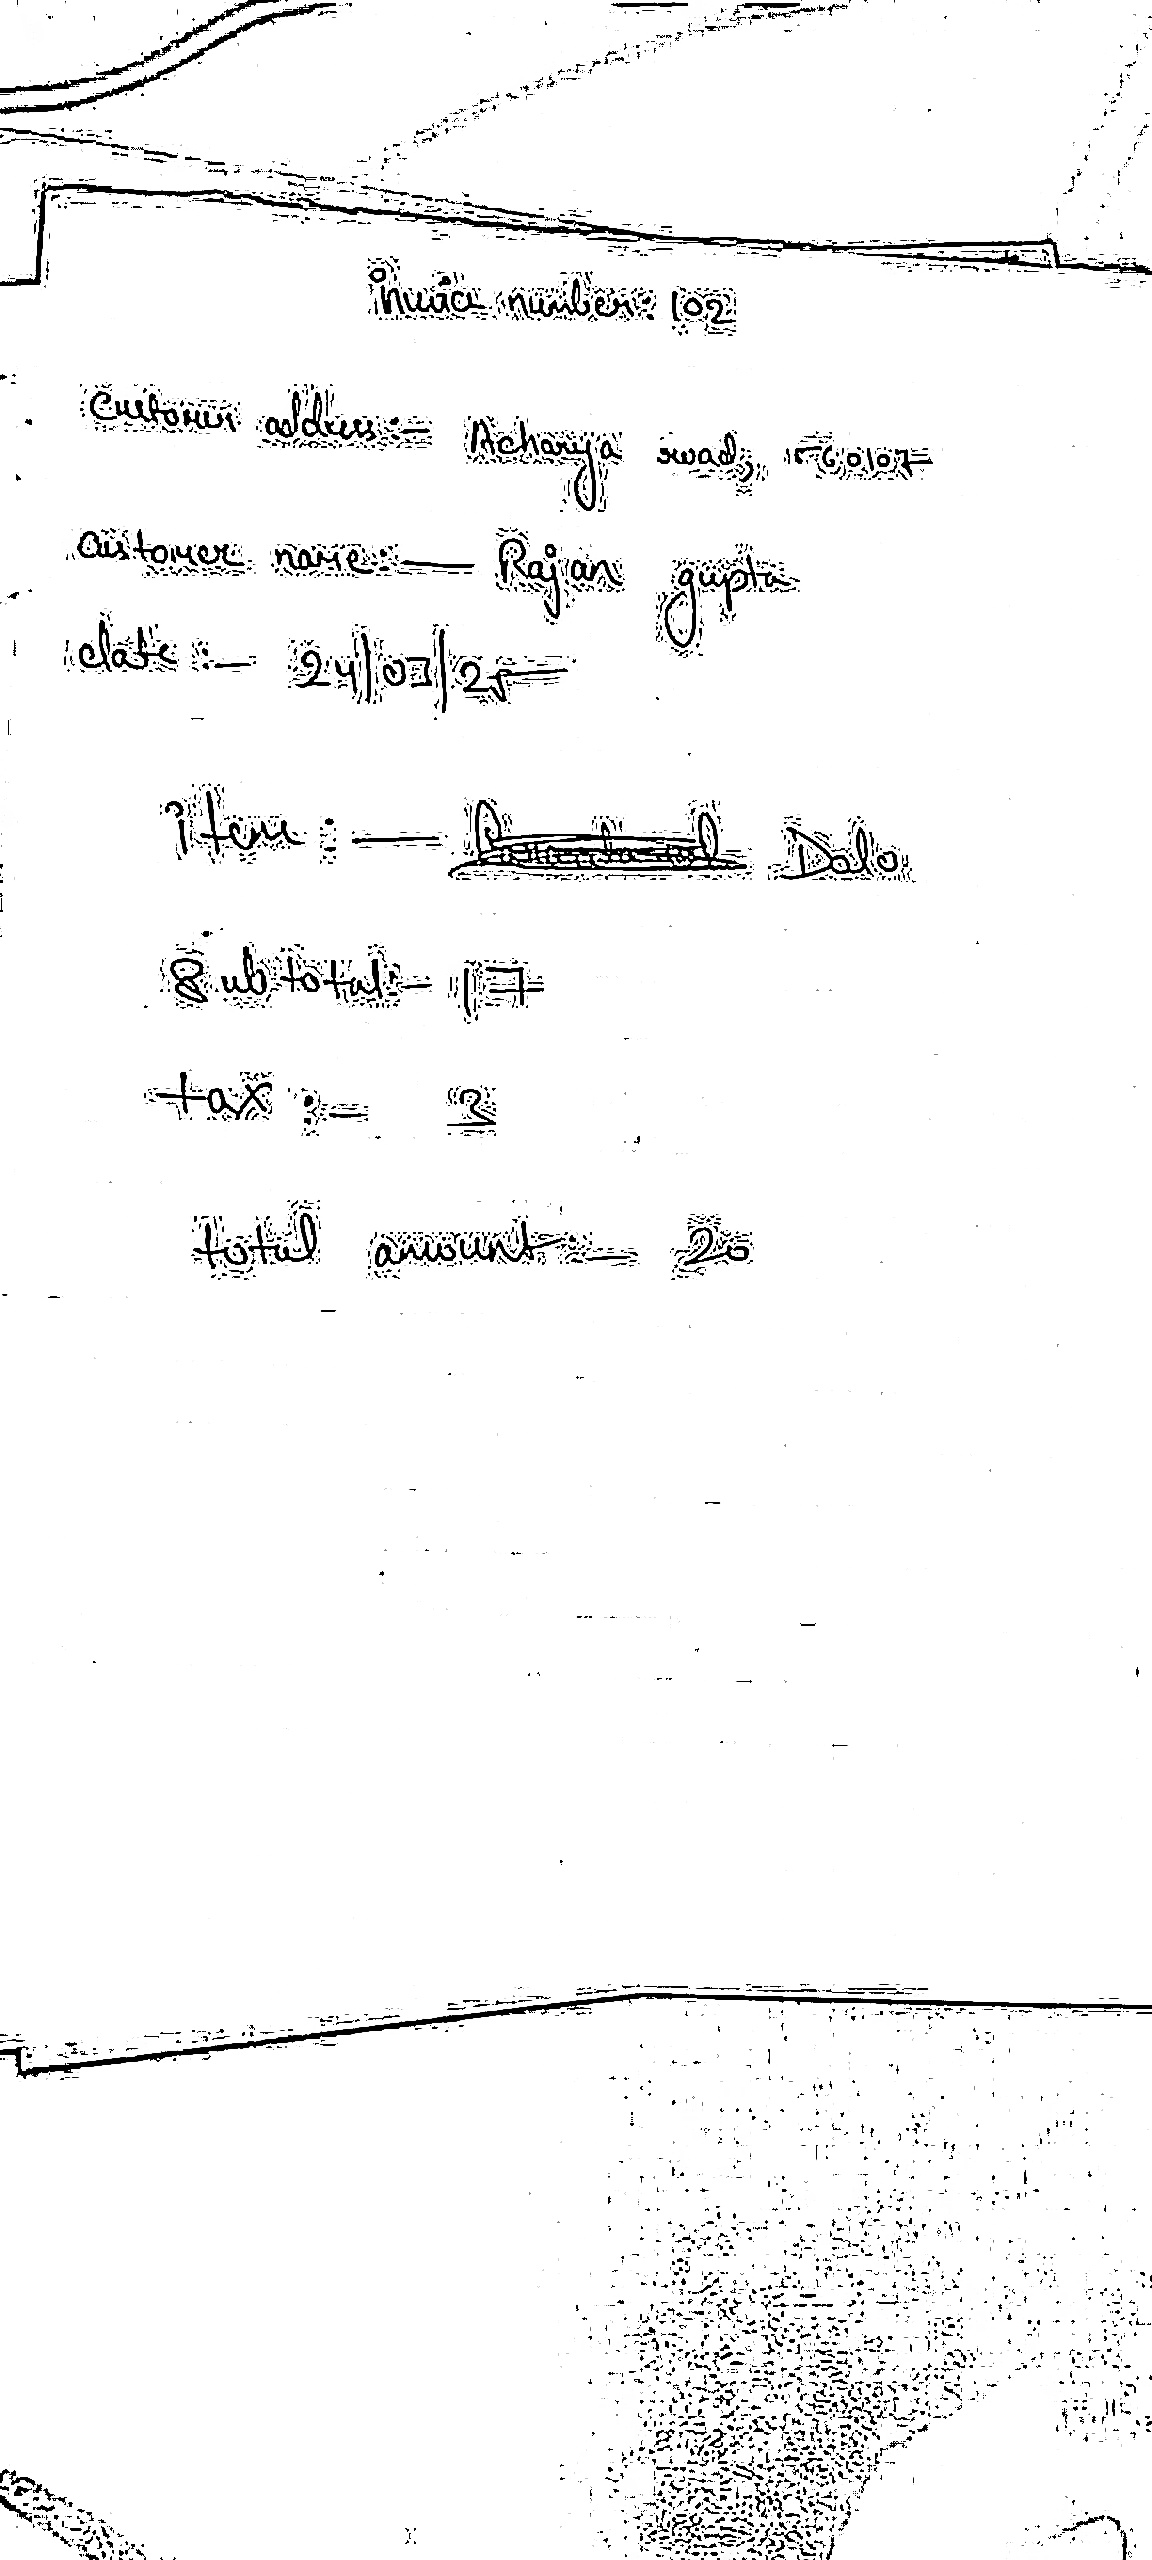 Invoice number: 102
Customer address:- Acharya road, 560107
Customer name:- Rajan gupta
date :- 24/07/25
item :- Dolo
Subtotal:- 17
tax :- 3
total amount:- 20